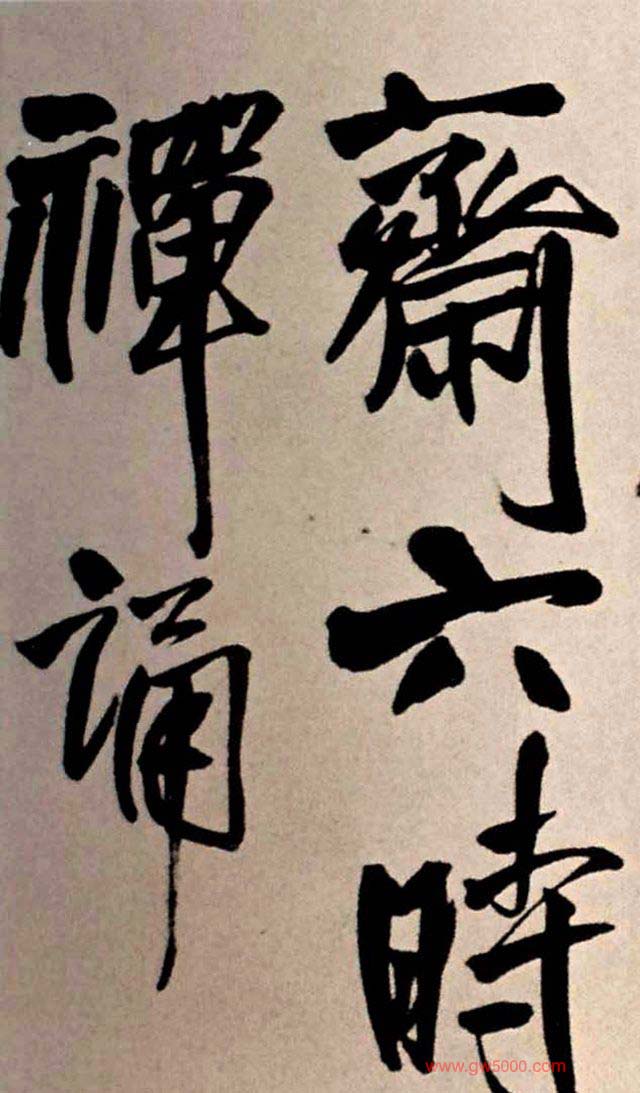 齋六時
禪誦
www.gw5000.com